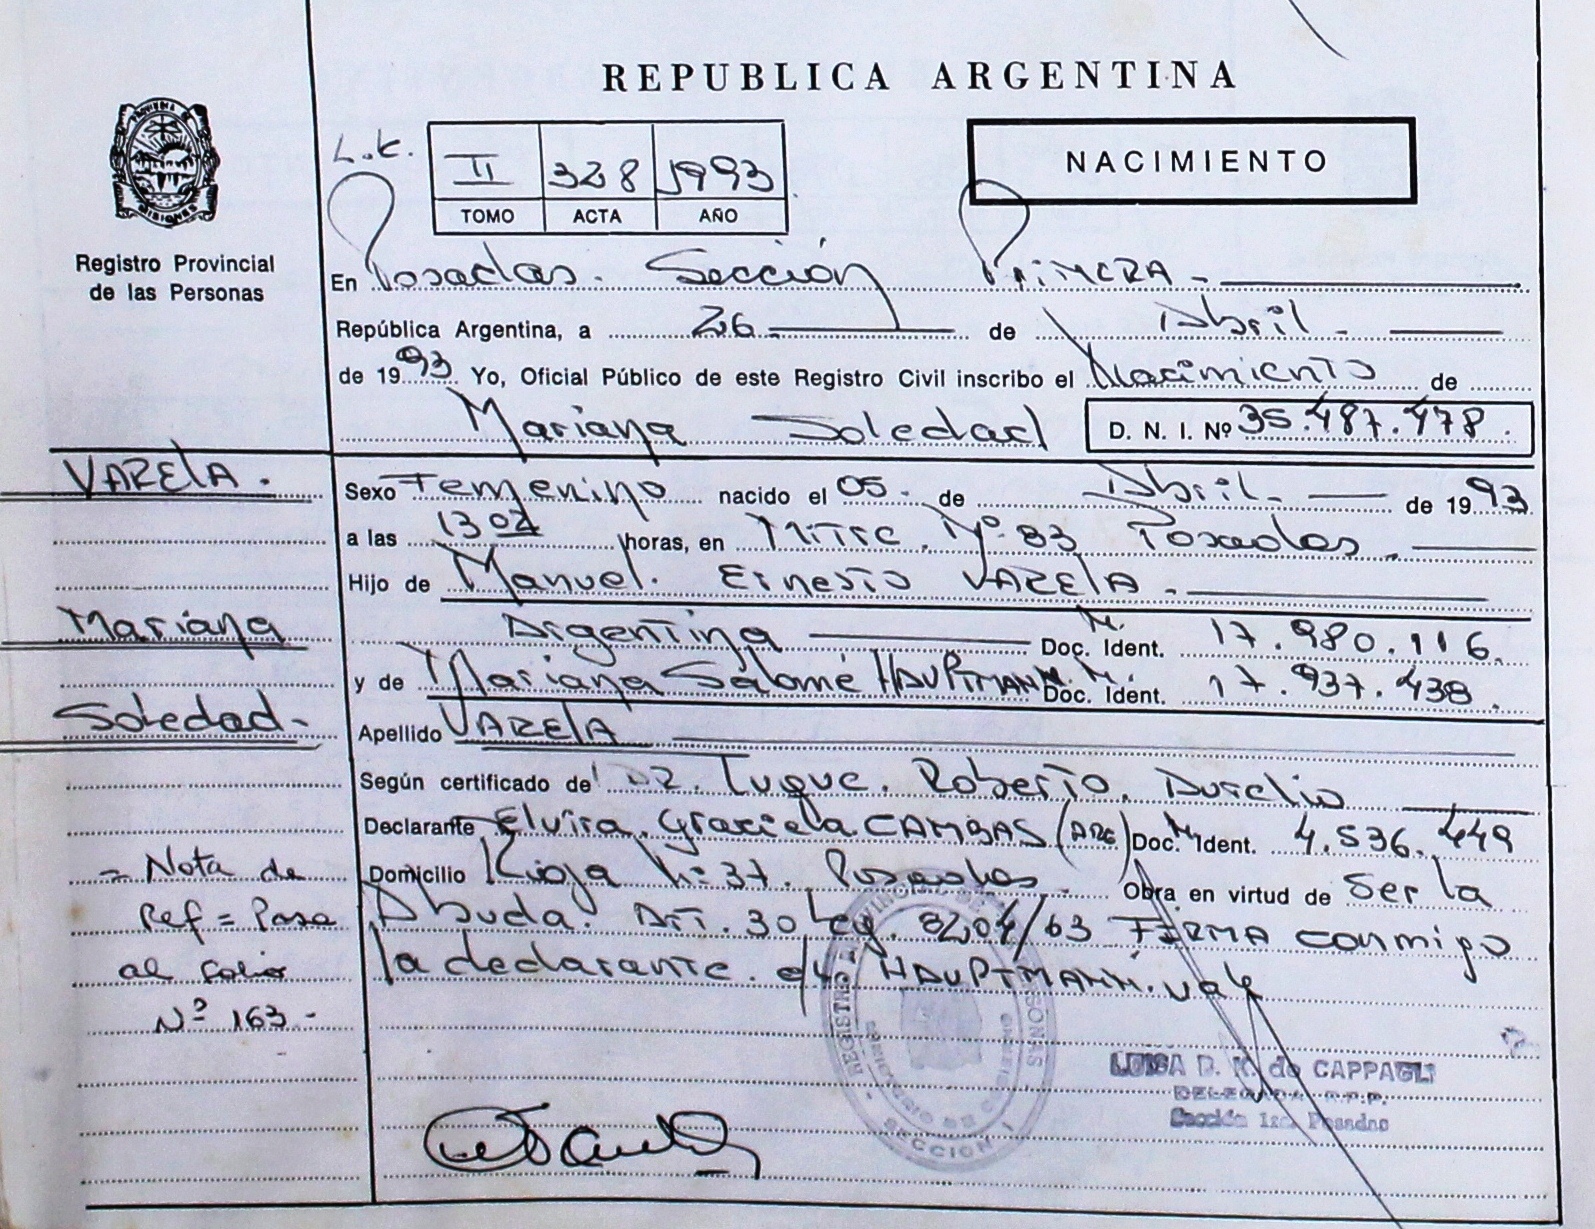 REPUBLICA ARGENTINA
PROVINCIA DE MISIONES
Registro Provincial
de las Personas
L.C.
II 328 1993
TOMO ACTA AÑO
NACIMIENTO
En Posadas. Sección Primera -
República Argentina, a 26 de Abril -
de 1993 Yo, Oficial Público de este Registro Civil inscribo el Nacimiento de
Mariana Soledad D. N. I. Nº 35.487.478.
VARELA.
Sexo Femenino nacido el 05. de Abril - de 1993
a las 13 02 horas, en Mitre. Nº 83 Posadas. -
Hijo de Manuel. Ernesto VARELA. -
Mariana
Argentina M. Doc. Ident. 17.980.116.
y de Mariana Salomé HAUPTMANN. M. Doc. Ident. 17.937.438.
Soledad -
Apellido VARELA
Según certificado de DR. Tuque. Roberto. Aurelio
Declarante Elvira. Graciela CAMBAS (ARG) M. Doc. Ident. 4.536.449
= Nota de
Ref = Pasa
al folio
Nº 163 -
Domicilio Rioja Nº 37. Posadas - Obra en virtud de Ser la
Abuela. Art. 30 Ley. 8204/63 FIRMA conmigo
la declarante. e/l. HAUPTMANN. Vale
REGISTRO PROVINCIAL DE LAS PERSONAS
SECCION I
LUISA D. K. de CAPPAGLI
DELEGADA R.P.P.
Sección 1ra. Posadas